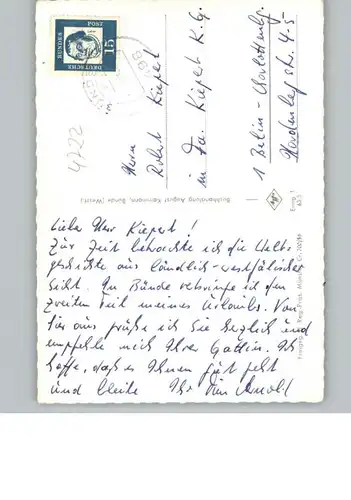 DEUTSCHE
BUNDES
POST
15
4722
Herrn
Robert Kiepert
in Fa. Kiepert K.G.
1 Berlin-Charlottenbg.
Hardenbergstr. 4-5
Buchhandlung August Kiemmann, Bünde (Westf.)
Agfa
Lieber Herr Kiepert!
Zur Zeit betrachte ich die Welt-
geschichte aus ländlich-westfälischer
Sicht. In Bünde verbringe ich den
zweiten Teil meines Urlaubs. Von
hier aus grüße ich Sie herzlich und
empfehle mich Ihrer Gattin. Ich
hoffe, daß es Ihnen gut geht
und bleibe Ihr